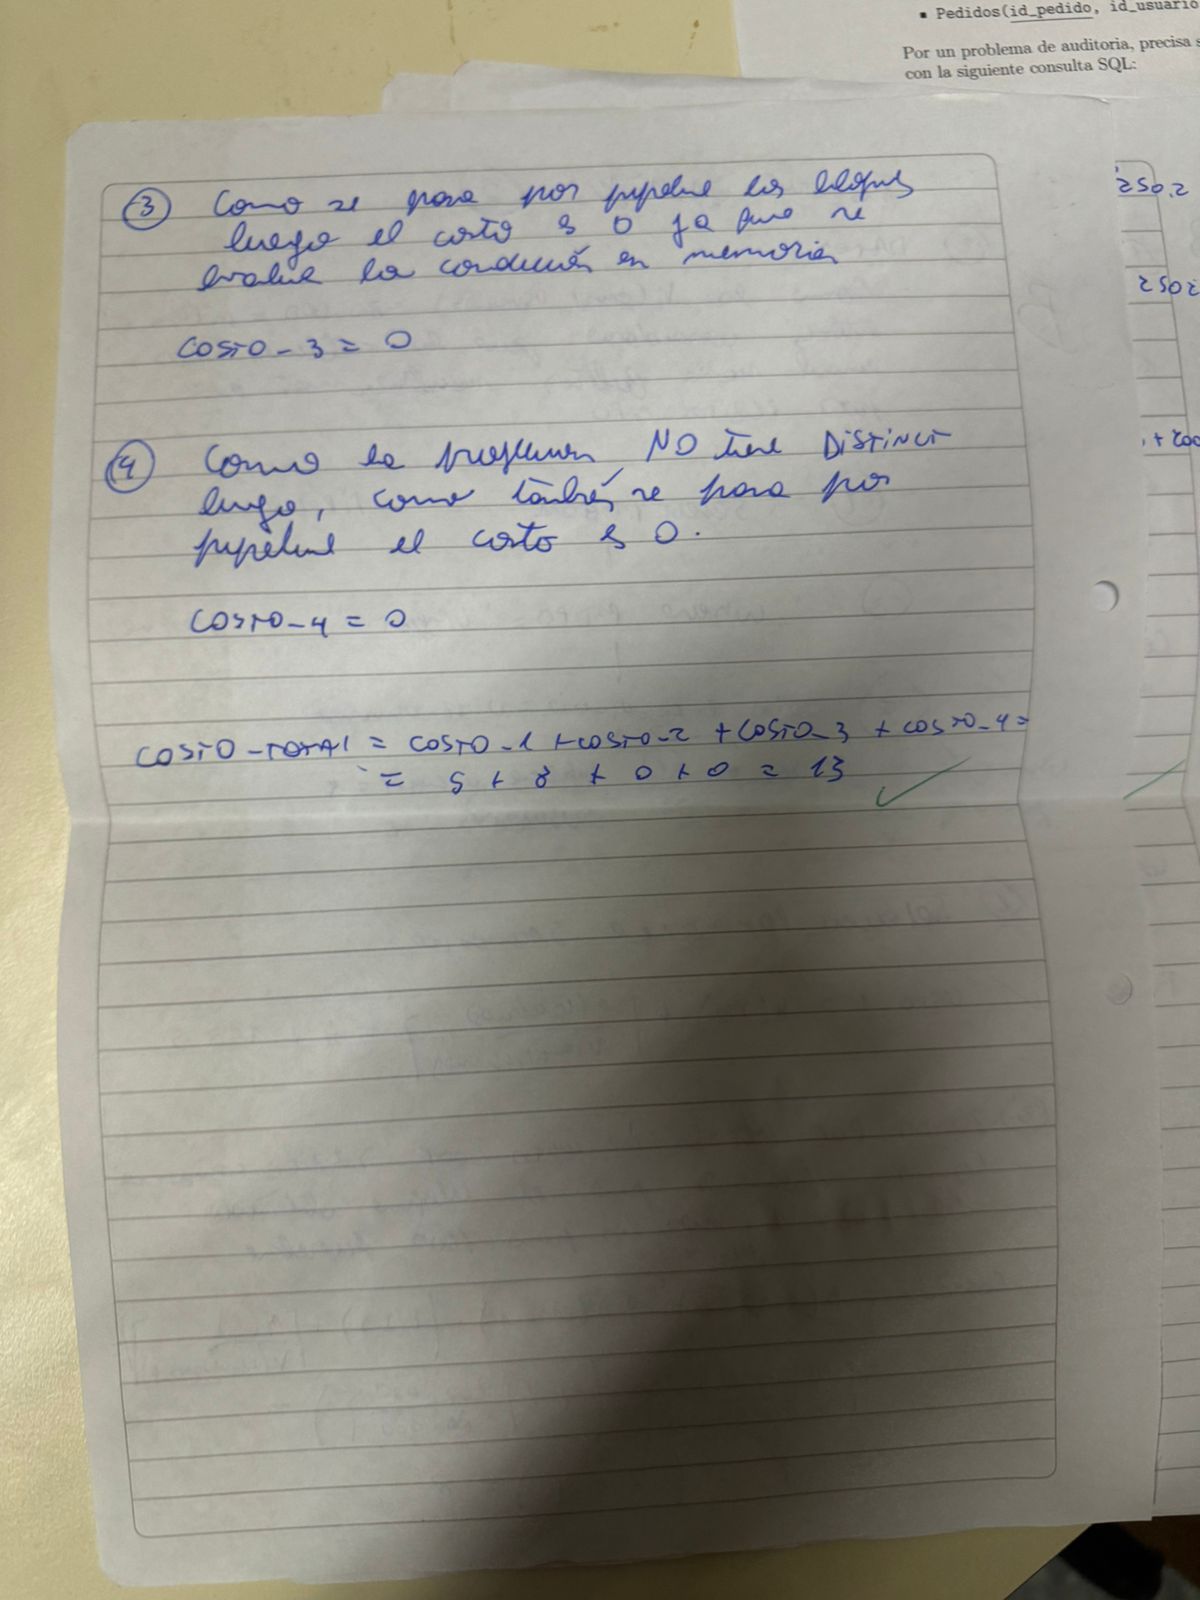 ▪ Pedidos(id_pedido, id_usuario
Por un problema de auditoria, precisa s
con la siguiente consulta SQL:
250.2
2502
+200
③ Como se pasa por pipeline los bloques
luego el costo es 0 ya que se
evalua la condición en memoria
COSTO-3 = 0
④ Como la proyeccion NO tiene DISTINCT
luego, como también se pasa por
pipeline el costo es 0.
COSTO-4 = 0
COSTO-TOTAL = COSTO-1 + COSTO-2 + COSTO-3 + COSTO-4 =
= 5 + 8 + 0 + 0 = 13